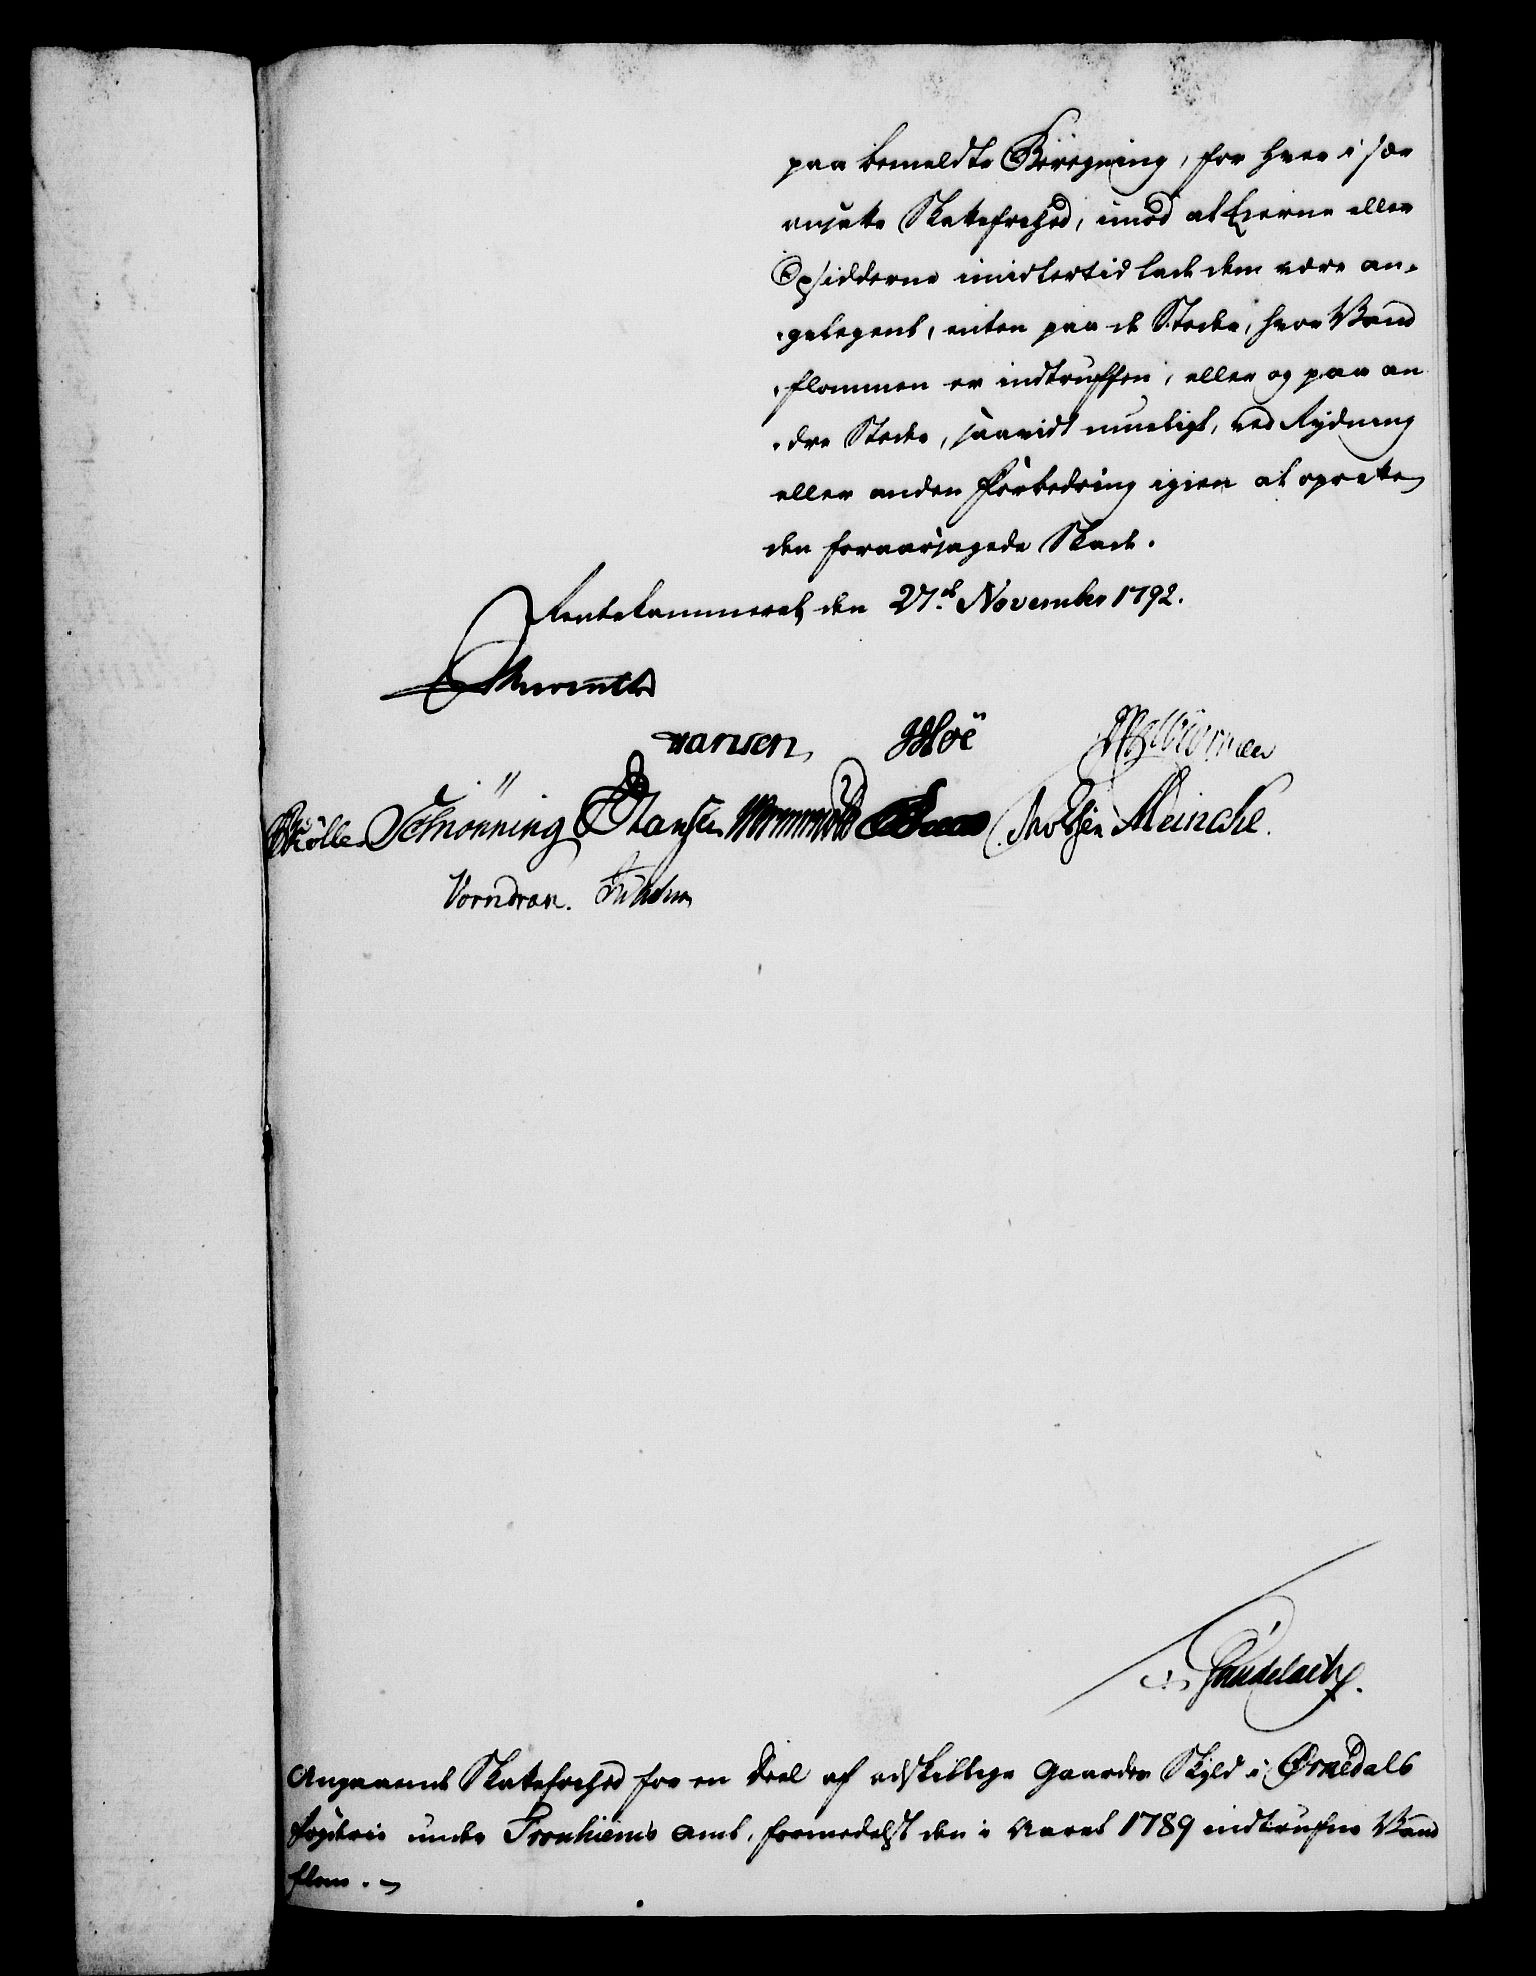 paa bemeldte Beregning, for hver i sær
ansatte Skattefrihed, imod at Eierne eller
Opsidderne imidlertid lade dem være an-
-gelegent, enten paa de Steder, hvor Vand
-flommen er indtruffen, eller og paa an
-dre Steder, saavidt mueligt, ved Rydning
eller anden Forbedring igien at oprette
den foraarsagede Skade.
Rentekammeret den 27de November 1792.
Hansen, Hoë
Schiönning Hansen Wormskiold Meincke.
Vorndran.
Angaaende Skattefrihed for en Deel af adskillige Gaarders Skyld i Ørkedals
Fogderie under Tronhiems Amt, formedelst den i Aaret 1789 indtrufne Vand
flom.